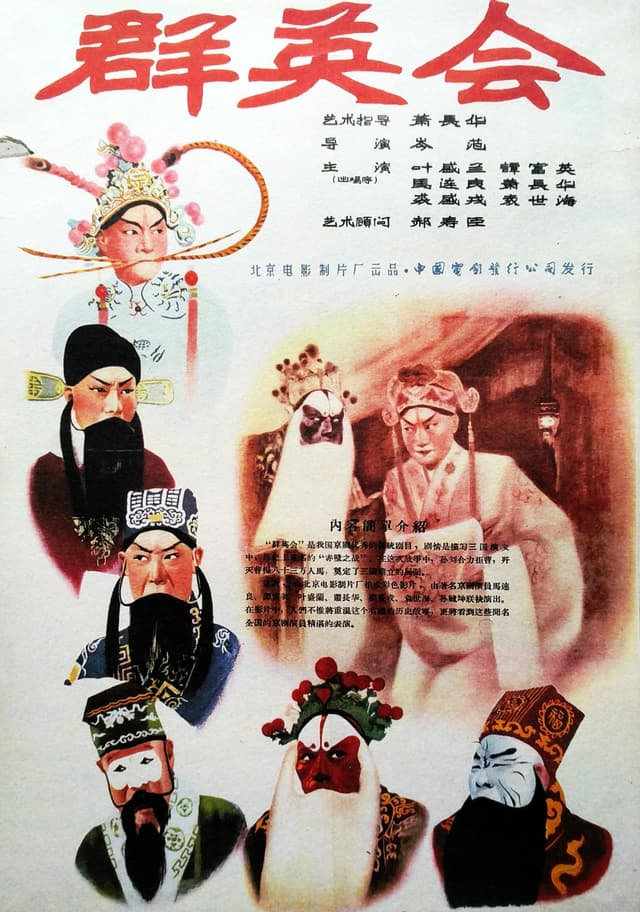 群英会
艺术指导 萧長华
导演 岑范
主演 叶盛兰 譚富英
(出場序) 馬连良 萧長华
裘盛戎 袁世海
艺术顾问 郝寿臣
北京电影制片厂出品·中國電影發行公司发行
内容簡單介紹
“群英会”是我国京剧优秀的传統剧目，剧情是描写三国演义
中，著名的“赤壁之战”。在这次战爭中，孙刘合力拒曹，歼
灭曹操八十三万人馬，奠定了三國鼎立的局面。
北京电影制片厂拍成彩色影片，由著名京剧演員馬連
良、譚富英、叶盛蘭、蕭長华、裘盛戎、袁世海、孙毓坤联袂演出。
在影片中，人們不惟將重温这个有趣的历史故事，更將看到这些聞名
全国的京剧演員精湛的表演。